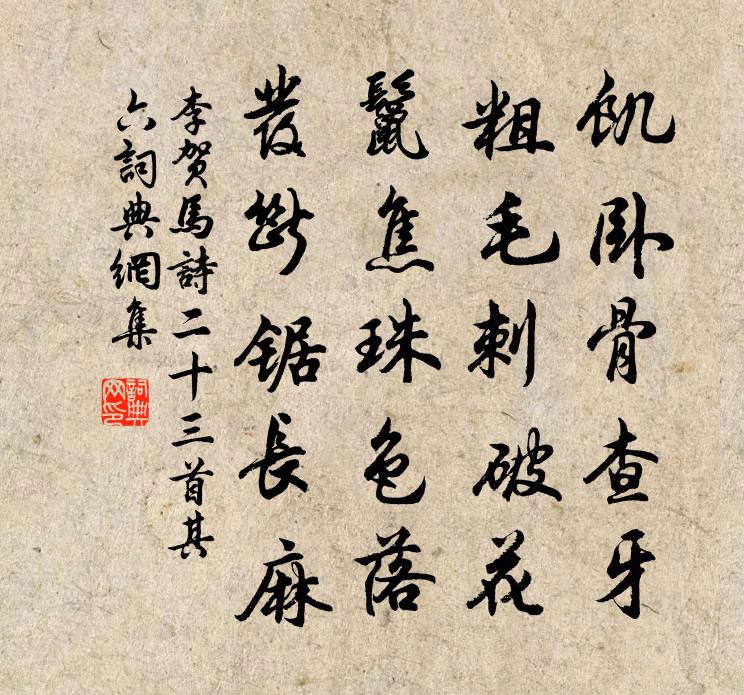 飢卧骨查牙
粗毛刺破花
鬣焦珠色落
發斷鋸長麻
李賀馬詩二十三首其
六詞典網集
詞典
网印